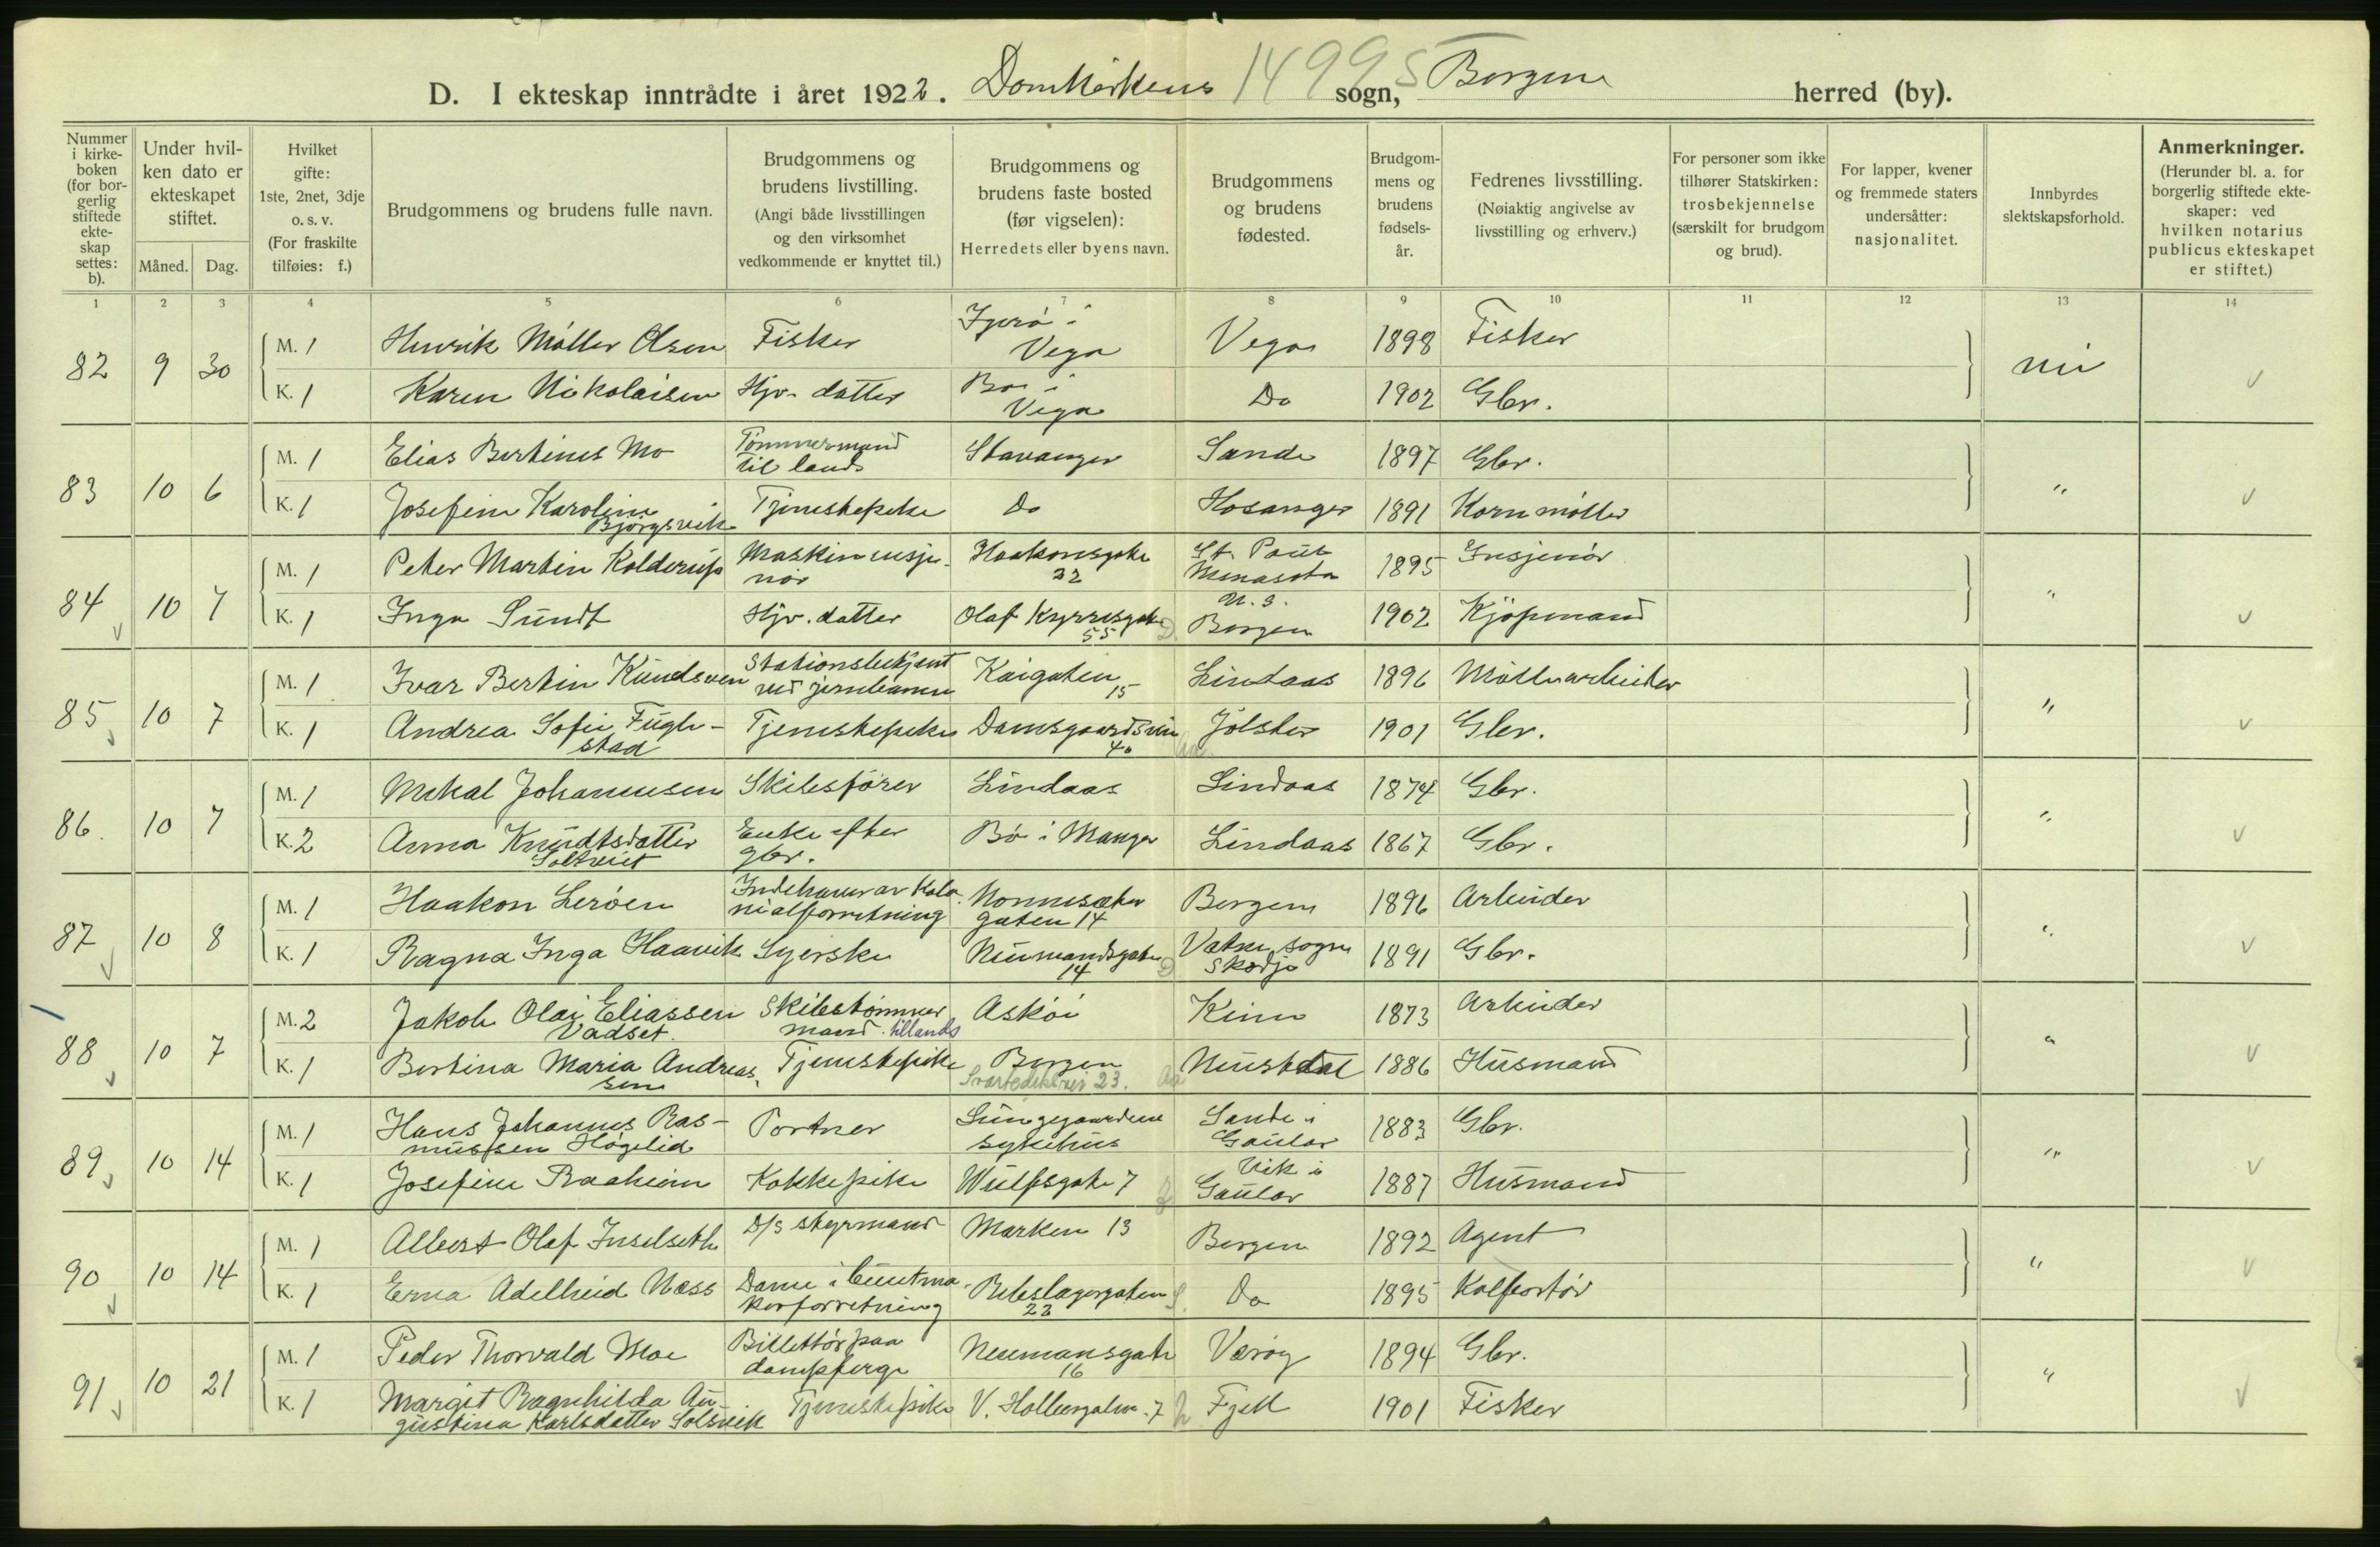 D. I ekteskap inntrådte i året 1922. Domkirkens sogn, Bergen herred (by).
14995
Nummer i kirke-boken (for bor-gerlig stiftede ekte-skap settes: b).
Under hvil-ken dato er ekteskapet stiftet.
Måned. Dag.
Hvilket gifte: 1ste, 2net, 3dje o. s. v. (For fraskilte tilføies: f.)
Brudgommens og brudens fulle navn.
Brudgommens og brudens livstilling. (Angi både livsstillingen og den virksomhet vedkommende er knyttet til.)
Brudgommens og brudens faste bosted (før vigselen): Herredets eller byens navn.
Brudgommens og brudens fødested.
Brudgom-mens og brudens fødsels-år.
Fedrenes livsstilling. (Nøiaktig angivelse av livsstilling og erhverv.)
For personer som ikke tilhører Statskirken: trosbekjennelse (særskilt for brudgom og brud).
For lapper, kvener og fremmede staters undersåtter: nasjonalitet.
Innbyrdes slektskapsforhold.
Anmerkninger. (Herunder bl. a. for borgerlig stiftede ekte-skaper: ved hvilken notarius publicus ekteskapet er stiftet.)
1 2 3 4 5 6 7 8 9 10 11 12 13 14
82 9 30 M. 1 Henrik Möller Olsen Fisker Igerö i Vega Vega 1898 Fisker
K. 1 Karen Nikolaisen Hjv. datter Vega Do 1902 Gbr.
83 10 6 M. 1 Elias Bertinus Mo Tömmermand til lands Stavanger Sande 1897 Gbr. "
K. 1 Josefine Karoline Bjørgsvik Tjenestepike Do Hosanger 1891 Kornmöller
84 10 7 M. 1 Peter Martin Kolderup Maskinensjenör Haakonsgate 32 St. Paul Menasota U. S. 1895 Insjenör "
K. 1 Inga Sundt Hjv. datter Olaf Kyrresgate 55 D. Bergen 1902 Kjöpmand
85 10 7 M. 1 Ivar Bertin Knudsen Stationsbetjent ved jernbanen Kaigaten 15 Lindaas 1896 Möllearbeider "
K. 1 Andrea Sofie Fugle-stad Tjenestepike Damsgaardsvei 40 Jölster 1901 Gbr.
86. 10 7 M. 1 Mikal Johannesen Skibsförer Lindaas Lindaas 1874 Gbr. "
K. 2 Anna Knudtsdatter Soltveit Enke efter gbr. Bö i Manger Lindaas 1867 Gbr.
87 10 8 M. 1 Haakon Leröen Indehaver av Kolo-nialforretning Nonnesæter gaten 14 Bergen 1896 Arbeider "
K. 1 Ragna Inga Haavik Syerske Neumandsgate 14 D Vatne sogn Skodje 1891 Gbr.
88 10 7 M. 2 Jakob Olai Eliassen Vadset. Skibstömmer mand tillands Asköi Kinn 1873 Arbeider "
K. 1 Bertina Maria Andreas-sen Tjenestepike Bergen Svartediksvei 23. Naustdal 1886 Husmand
89 10 14 M. 1 Hans Johannes Ras-mussen Högelid Portner Lungegaardens sykehus Sande i Gaular 1883 Gbr. "
K. 1 Josefine Raaheim Kokkepike Wulfsgate 7 Vik i Gaular 1887 Husmand
90 10 14 M. 1 Albert Olaf Inselseth D/S styrmand Marken 13 Bergen 1892 Agent "
K. 1 Erna Adelheid Næss Dame i buntma-kerforretning Rebslagergaten 23 S. Do 1895 Kolportör
91 10 21 M. 1 Peder Thorvald Moe Billettör paa dampferge Neumansgate 16 Værøy 1894 Gbr. "
K. 1 Margit Ragnhilda Au-gustina Karlsdatter Solsvik Tjenestepike V. Holbergalm. 7 Fjell 1901 Fisker